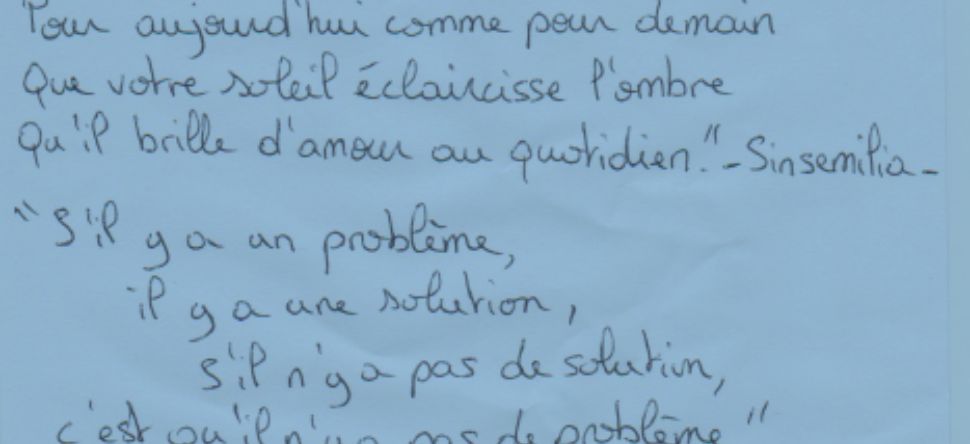 Pour aujourd'hui comme pour demain
Que votre soleil éclaircisse l'ombre
Qu'il brille d'amour au quotidien." - Sinsemilia -
"S'il y a un problème,
il y a une solution,
S'il n'y a pas de solution,
c'est qu'il n'y a pas de problème"